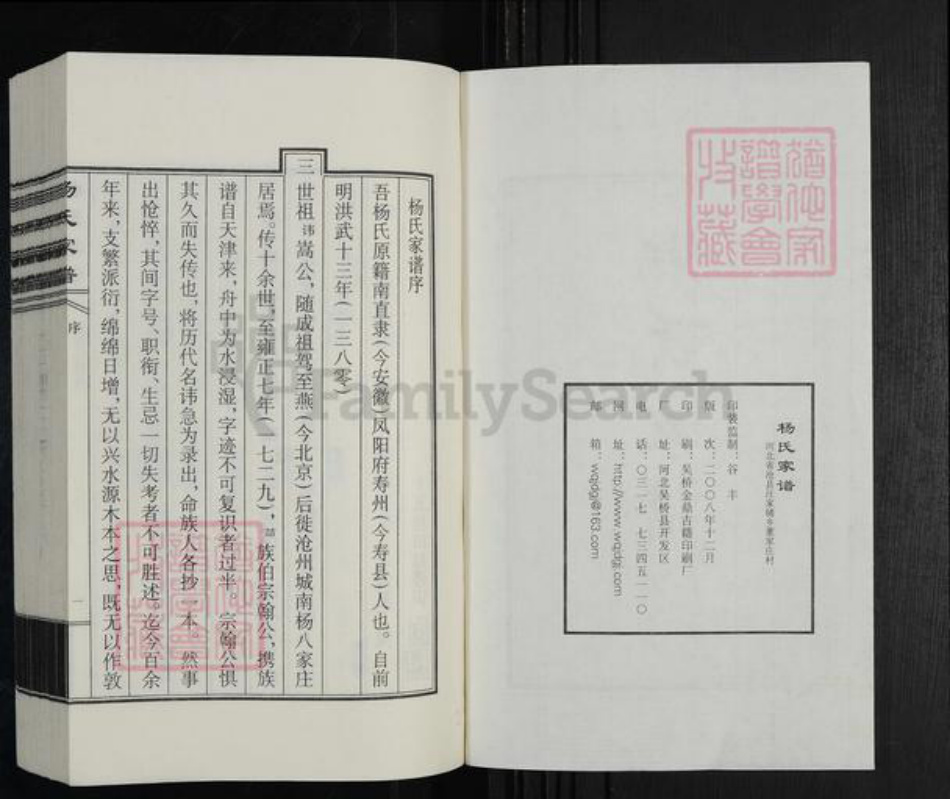 杨氏家谱
河北省沧县汪家铺乡董家庄村
印装监制：谷 丰
版 次：二〇〇八年十二月
印 刷：吴桥金鼎古籍印刷厂
厂 址：河北吴桥县开发区
电 话：〇三一七 七三四五一一〇
网 址：http://www.wqjdgj.com
邮 箱：wqjdgj@163.com
杨氏家谱序
吾杨氏原籍南直隶（今安徽）凤阳府寿州（今寿县）人也。自前
明洪武十三年（一三八零）
三世祖讳嵩公，随成祖驾至燕（今北京）后徙沧州城南杨八家庄
居焉。传十余世，至雍正七年（一七二九），族伯宗翰公，携族
谱自天津来，舟中为水浸湿，字迹不可复识者过半。宗翰公惧
其久而失传也，将历代名讳急为录出，命族人各抄一本。然事
出怆悴，其间字号、职衔、生忌一切失考者不可胜述。迄今百余
年来，支繁派衍，绵绵日增，无以兴水源木本之思，既无以作敦
杨氏家谱
序
一
谱学会
收藏
FamilySearch